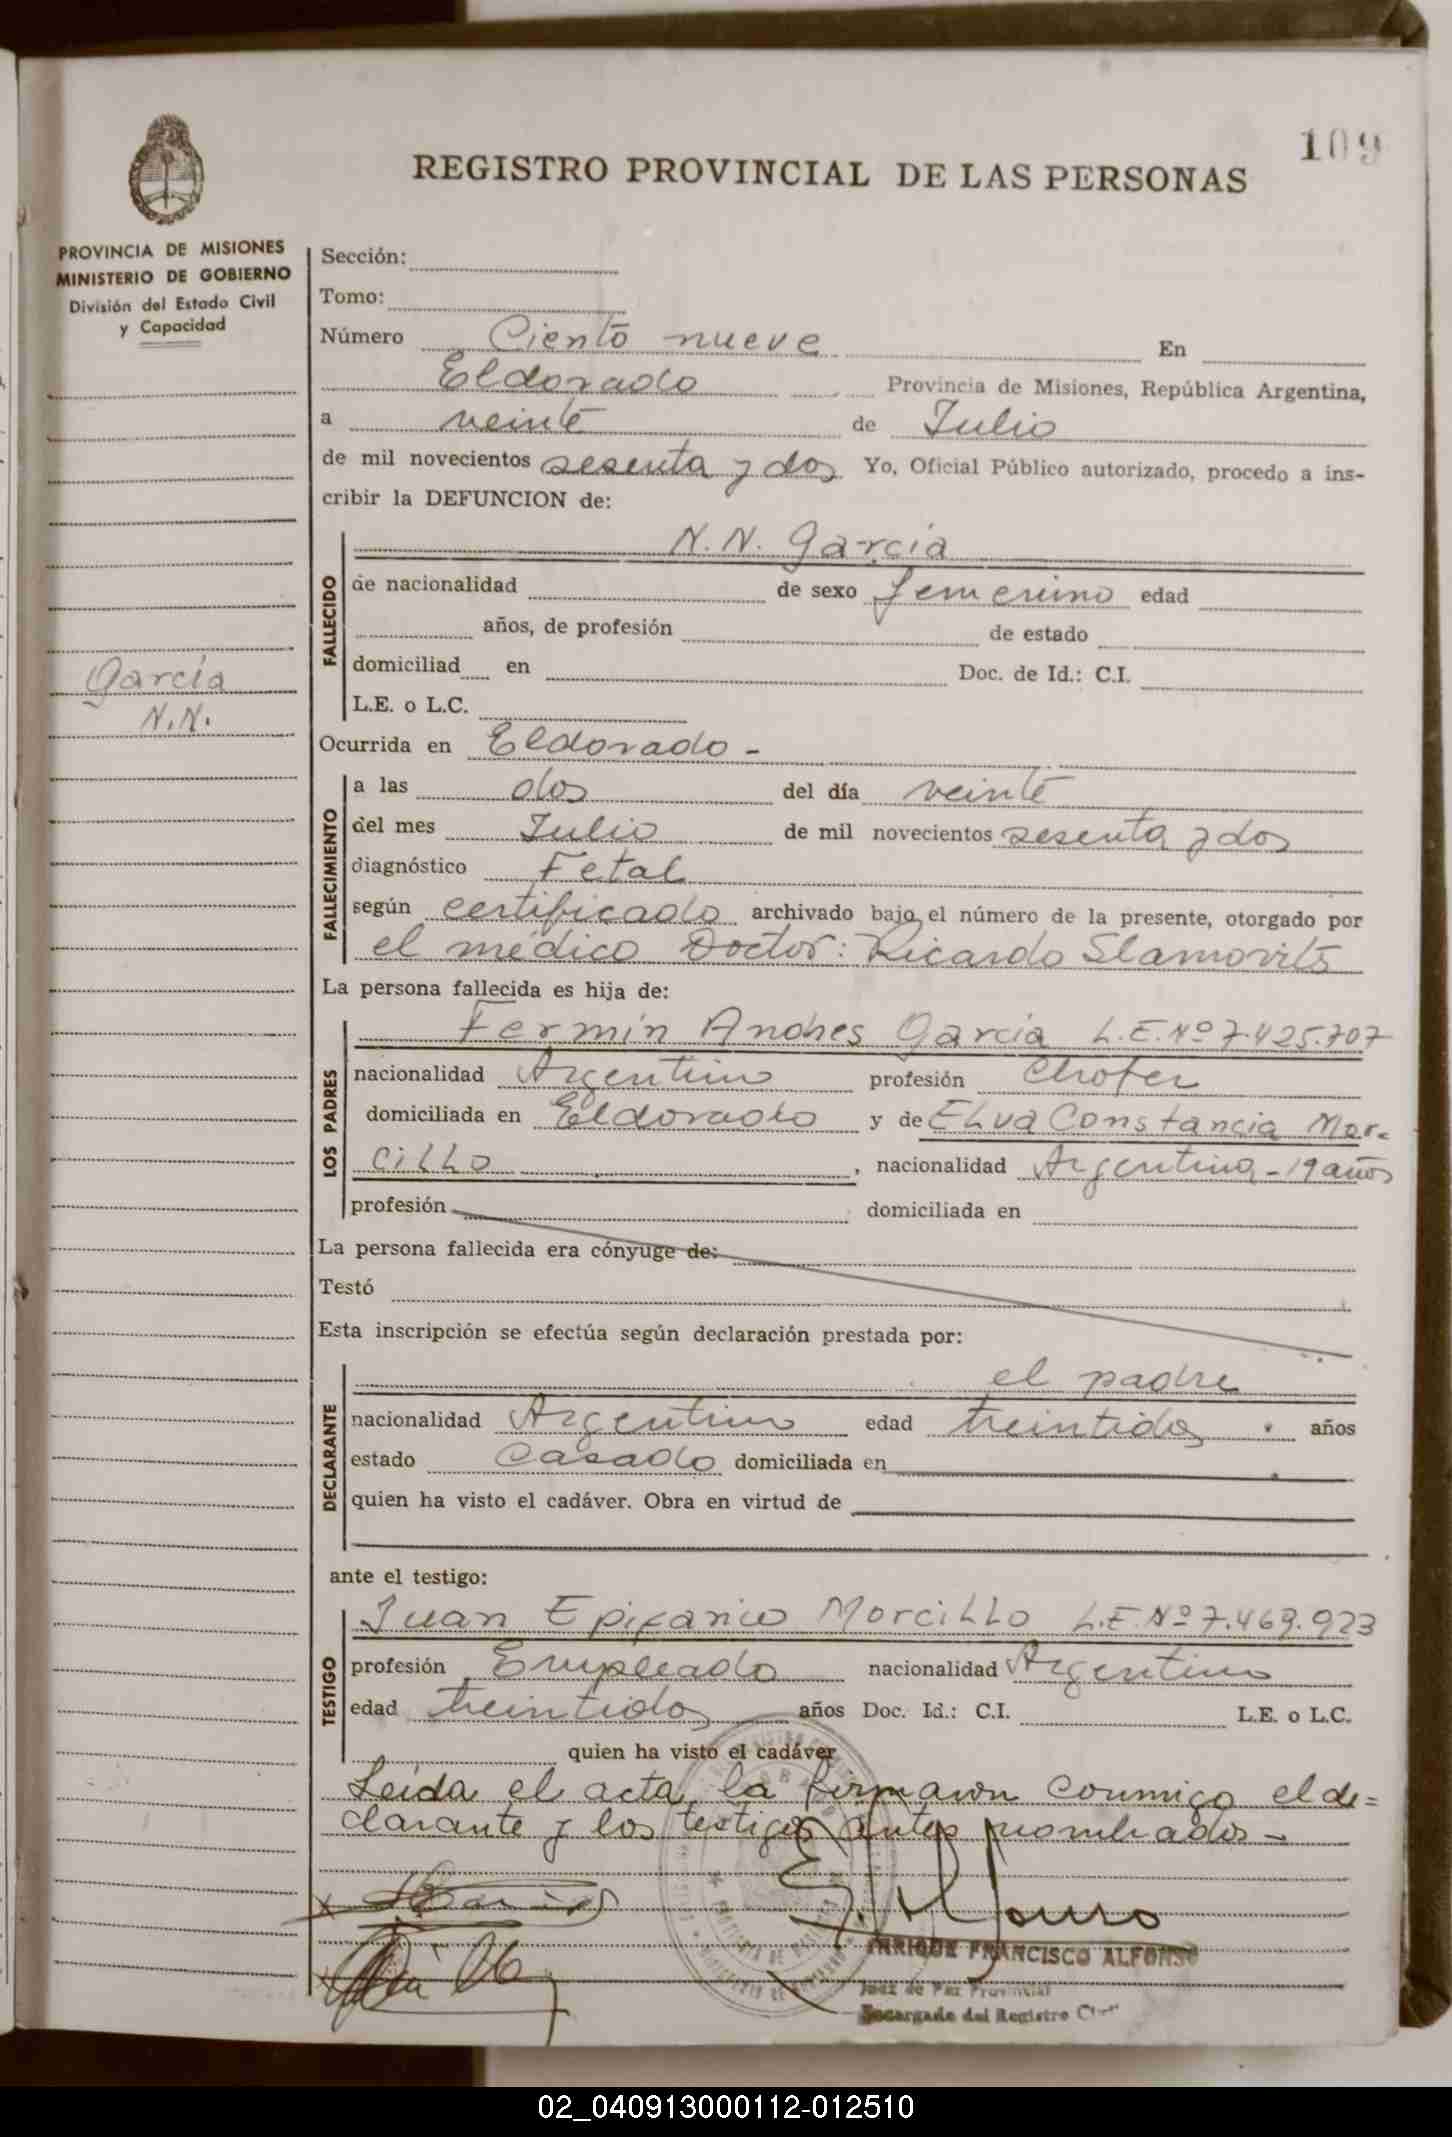 109
REGISTRO PROVINCIAL DE LAS PERSONAS
PROVINCIA DE MISIONES
MINISTERIO DE GOBIERNO
División del Estado Civil
y Capacidad
García
N.N.
Sección:
Tomo:
Número Ciento nueve En
Eldorado Provincia de Misiones, República Argentina,
a veinte de Julio
de mil novecientos sesenta y dos Yo, Oficial Público autorizado, procedo a ins-
cribir la DEFUNCION de:
FALLECIDO
N.N. García
de nacionalidad de sexo femenino edad
años, de profesión de estado
domiciliad en Doc. de Id.: C.I.
L.E. o L.C.
Ocurrida en Eldorado -
FALLECIMIENTO
a las dos del día veinte
del mes Julio de mil novecientos sesenta y dos
diagnóstico Fetal
según certificado archivado bajo el número de la presente, otorgado por
el médico Doctor: Ricardo Slamovits
La persona fallecida es hija de:
LOS PADRES
Fermín Andres García L.E. Nº 7.425.707
nacionalidad Argentino profesión Chofer
domiciliada en Eldorado y de Elva Constancia Mor-
cillo, nacionalidad Argentina - 19 años
profesión domiciliada en
La persona fallecida era cónyuge de:
Testó
Esta inscripción se efectúa según declaración prestada por:
DECLARANTE
el padre
nacionalidad Argentino edad treintidos años
estado Casado domiciliada en
quien ha visto el cadáver. Obra en virtud de
ante el testigo:
TESTIGO
Juan Epifanio Morcillo L.E. Nº 7.469.923
profesión Empleado nacionalidad Argentino
edad treintidos años Doc. Id.: C.I. L.E. o L.C.
quien ha visto el cadáver
Leída el acta, la firmaron conmigo el de=
clarante y los testigos antes nombrados -
ENRIQUE FRANCISCO ALFONSO
Juez de Paz Provincial
Encargado del Registro Civil
02_040913000112-012510